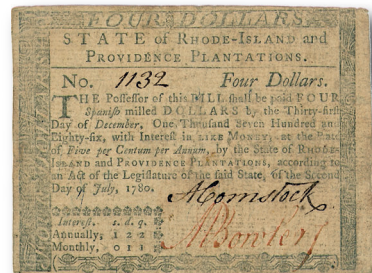 FOUR DOLLARS.
STATE of RHODE-ISLAND and
PROVIDENCE PLANTATIONS.
No. 1132 Four Dollars.
THE Possessor of this BILL shall be paid FOUR
Spanish milled DOLLARS by the Thirty-first
Day of December, One Thousand Seven Hundred and
Eighty-six, with Interest in LIKE MONEY, at the Rate
of Five per Centum per Annum, by the State of RHODE-
ISLAND and PROVIDENCE PLANTATIONS, according to
an Act of the Legislature of the said State, of the Second
Day of July, 1780.
A Comstock
Interest. s. d. q.
Annually, 1 2 2
Monthly, 0 1 1
M Bowler